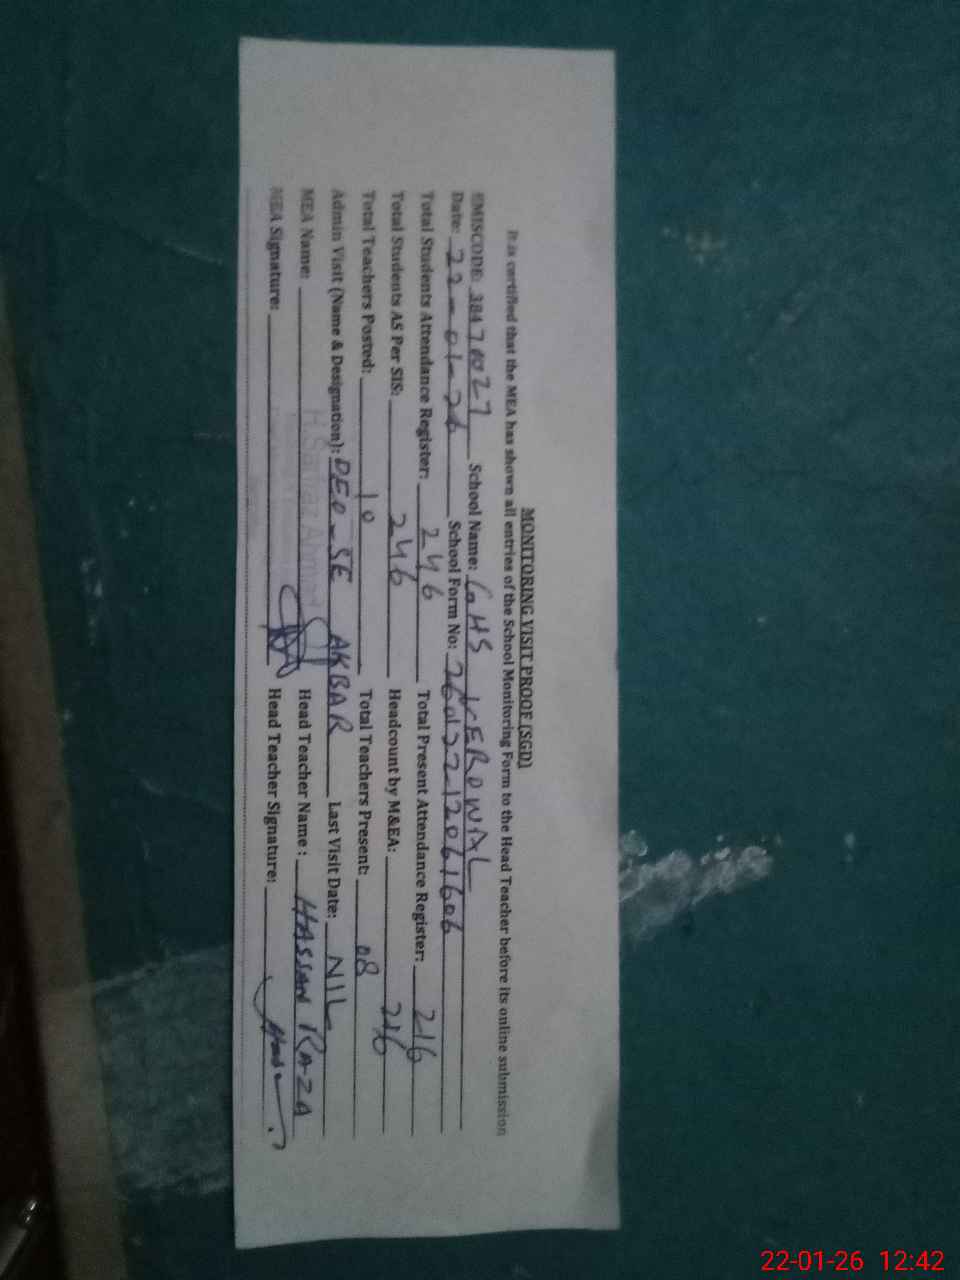 MONITORING VISIT PROOF (SGD)
It is certified that the MEA has shown all entries of the School Monitoring Form to the Head Teacher before its online submission
EMISCODE: 38470027 School Name: GHS VEROWAL
Date: 22-01-26 School Form No: 26012212061606
Total Students Attendance Register: 246 Total Present Attendance Register: 216
Total Students AS Per SIS: 246 Headcount by M&EA: 216
Total Teachers Posted: 10 Total Teachers Present: 08
Admin Visit (Name & Designation): DEO-SE AKBAR Last Visit Date: NIL
MEA Name: Ahmad Head Teacher Name: HASSAN RAZA
MEA Signature: Head Teacher Signature:
22-01-26 12:42